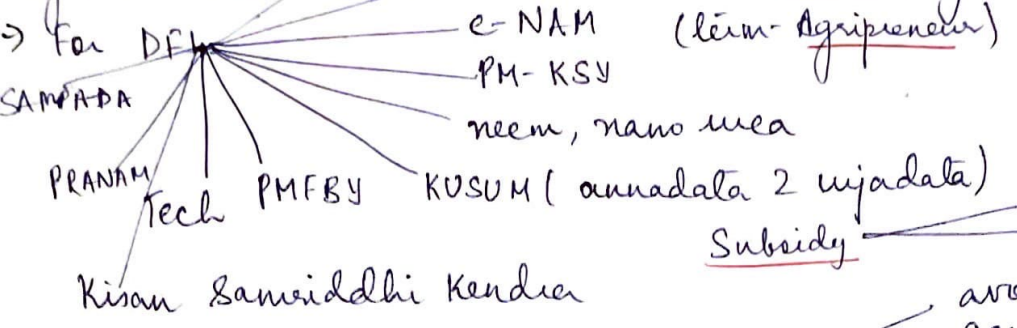 → For DFI e-NAM (term- Agripreneur)
SAMPADA PM-KSY
neem, nano urea
PRANAM Tech PMFBY KUSUM ( annadata 2 urjadata)
Subsidy
Kisan Samriddhi Kendra